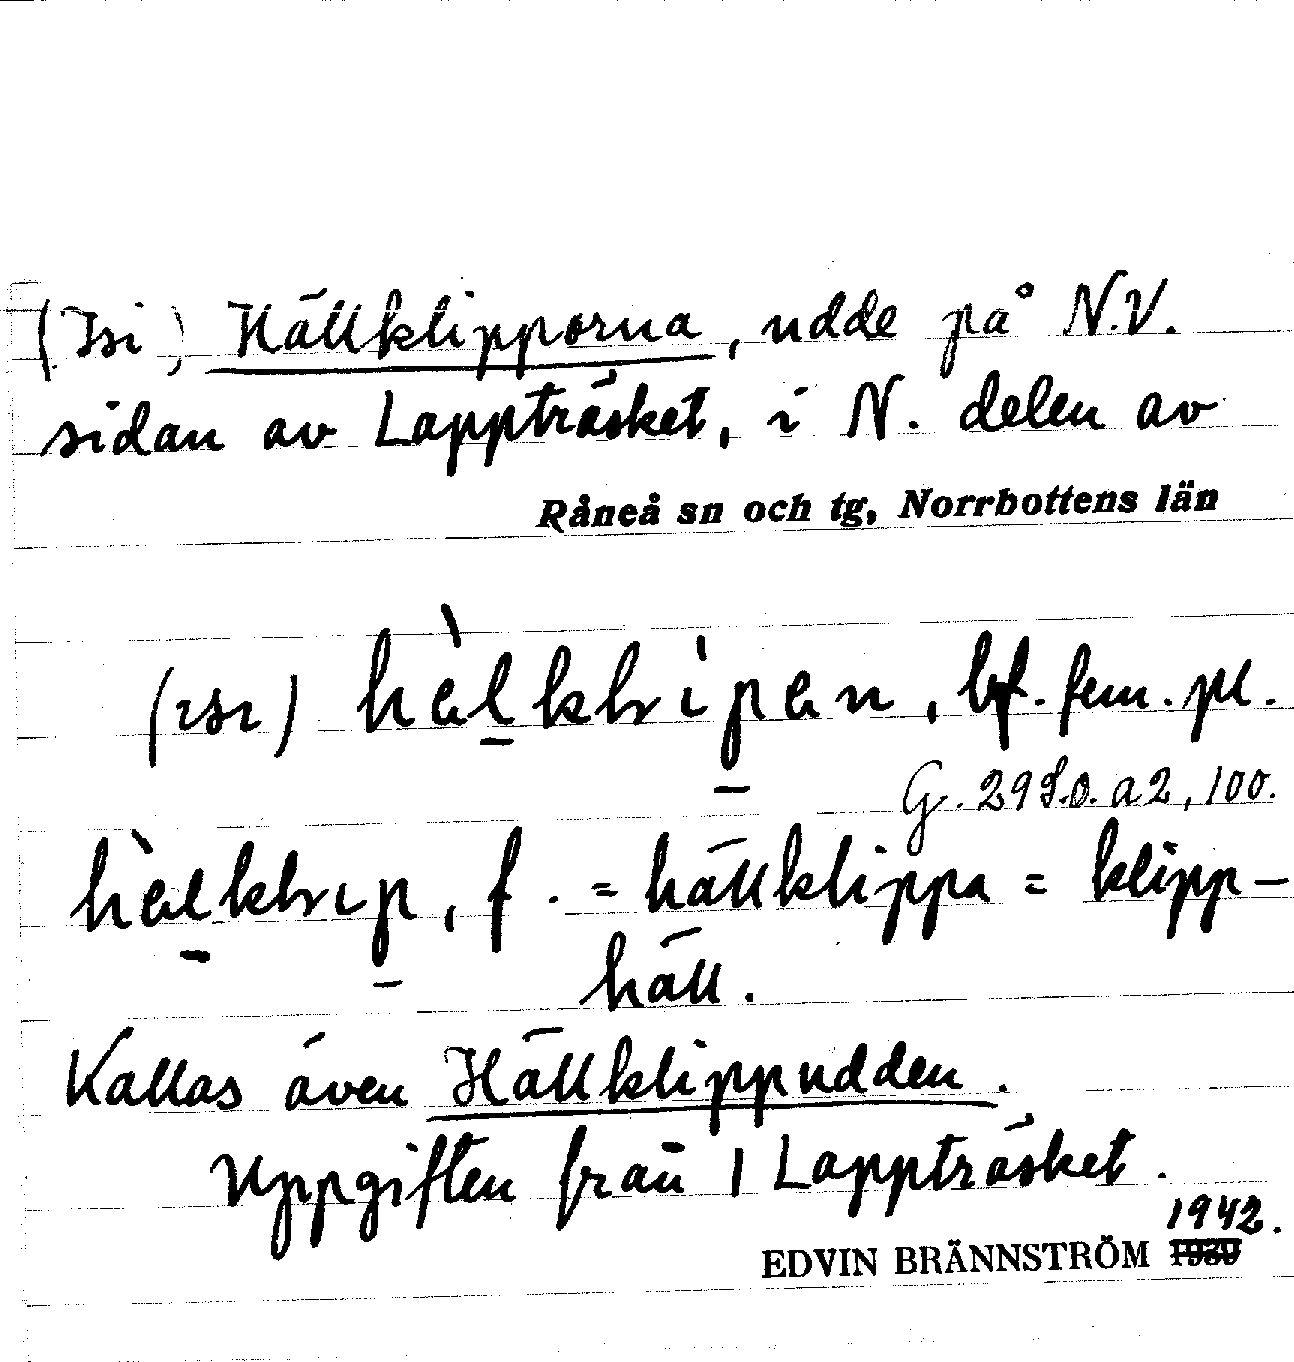 (Isi) Hällklipporna, udde på N.V.
sidan av Lappträsket, i N. delen av
Råneå sn och tg, Norrbottens län
(ɪsɪ) hὰl̠klɩ̀p̠an, bf. fem. pl.
G. 29 S.O. a 2, 100.
hὰl̠klɩp̠, f. = hällklippa = klipp-
häll.
Kallas även Hällklippudden.
Uppgiften från 1 Lappträsket.
1942.
EDVIN BRÄNNSTRÖM 1939